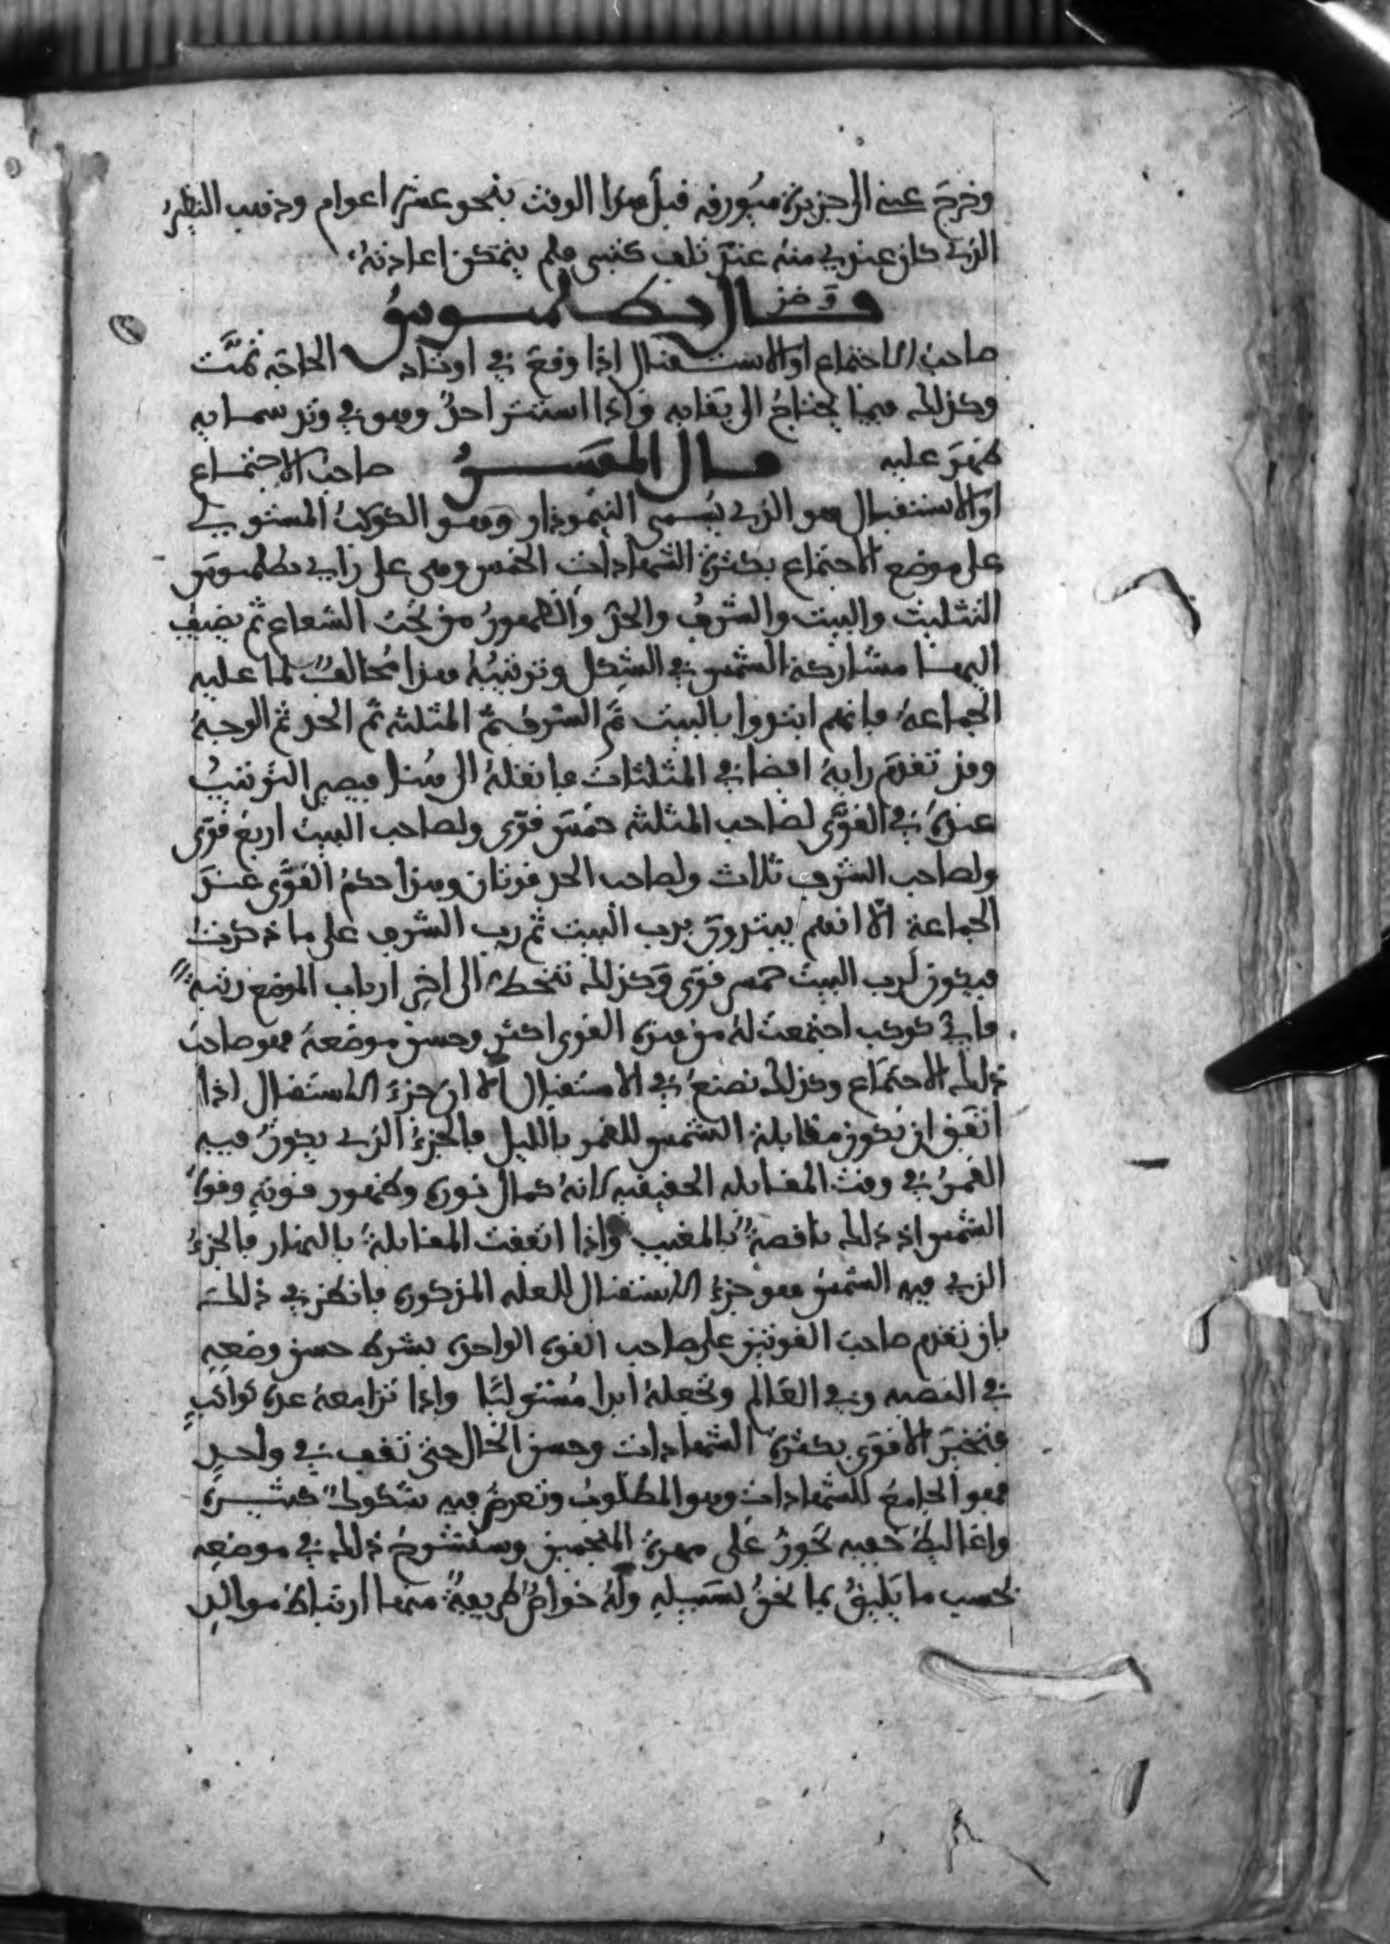 وخرج عنه الى جزيرة ميورقه قبل هذا الوقت بنحو عشرة اعوام وذهب النظر
الذي كان عندي منه عند تلف كتبي فلم يتمكن اعادته
قال بطلميوس
صاحب الاجتماع او الاستقبال اذا وقع في اوتاد الحاجة تمت
وكذلك فيما يحتاج الى بقايه واذا استتر احد وهو في وتد سما به
ظهر عليه قال المفسر صاحب الاجتماع
او الاستقبال هو الذي يسمى النيموذار وهو الكوكب المستولي
على موضع الاجتماع بكثرة الشهادات الخمس وهي على راي بطلميوس
التثليث والبيت والشرف والحد والظهور من تحت الشعاع ثم يضيف
اليها مشاركة الشمس في الشكل وترتيبه هذا مخالف لما عليه
الجماعة فانهم ابتدوا بالبيت ثم الشرف ثم المثلثه ثم الحد ثم الوجه
وقد تقدم رايه ايضا في المثلثات فانقله الى هنا فيصير الترتيب
عنده في القوى لصاحب المثلثه خمس قوى ولصاحب البيت اربع قوى
ولصاحب الشرف ثلاث ولصاحب الحد قوتان وهذا حكم القوى عند
الجماعة الا انهم يبتدون برب البيت ثم رب الشرف على ما ذكرت
فيكون لرب البيت خمس قوى وكذلك تنحط الى اخر ارباب الموضع رتبة
فاي كوكب اجتمعت له من هذه القوى اكثر وحسن موضعه فهو صاحب
ذلك الاجتماع وكذلك نصنع في الاستقبال الا ان جزء الاستقبال اذا
اتفق ان تكون مقابلة الشمس للقمر بالليل فالجزء الذي يكون فيه
القمر في وقت المقابله الحقيقيه لانه كمال نوره وظهور قوته وقوة
الشمس اذ ذلك ناقصة بالمغيب واذا اتفقت المقابلة بالنهار فالجزء
الذي فيه الشمس هو جزء الاستقبال للعله المذكورة فانظر في ذلك
بان تقدم صاحب القوتين على صاحب القوه الواحده بشرط حسن وضعه
في النصبه وفي العالم وتجعله ابدا مستوليا واذا تزامعه عدة كواكب
فتخير الاقوى بكثرة الشهادات وحسن الحال حتى تقف في واحد
فهو الجامع للشهادات وهو المطلوب وتعرض فيه شكوك كثيرة
واغاليط خفيه تجوز على مهرة المنجمين وسنشرح ذلك في موضعه
بحسب ما يليق بما نحن لسبيله وله خواص ظريفة منها ارتباط مواليد